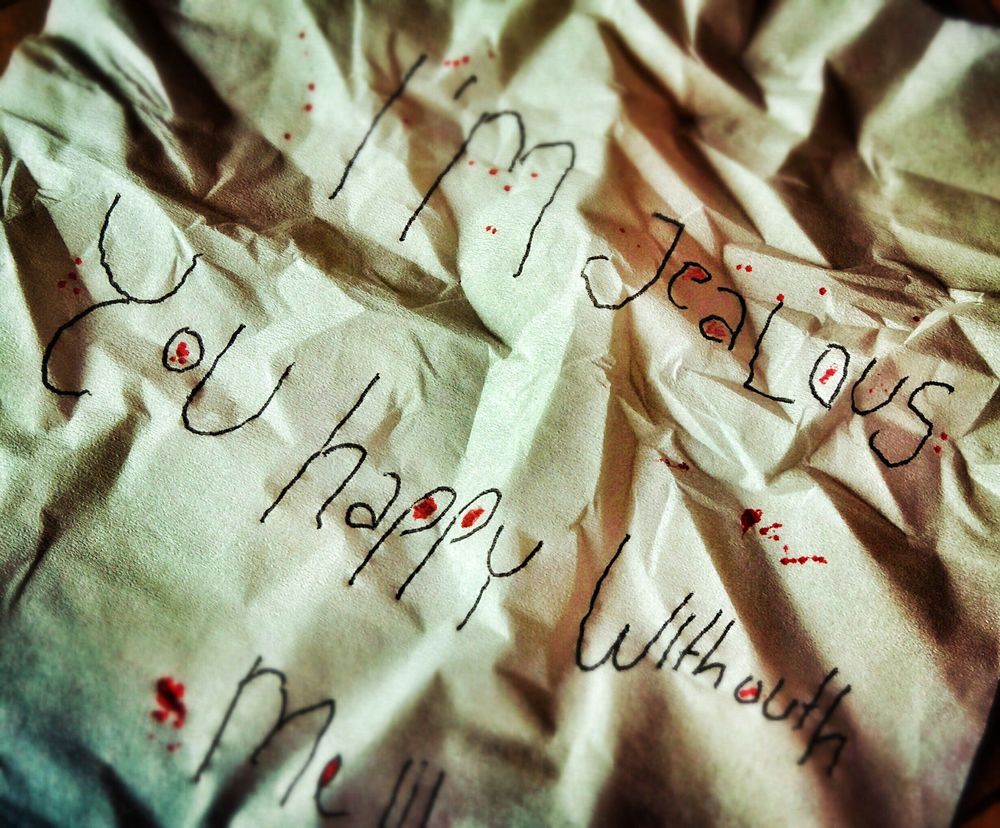 I'm Jealous
You happy Withouth
Me !!!